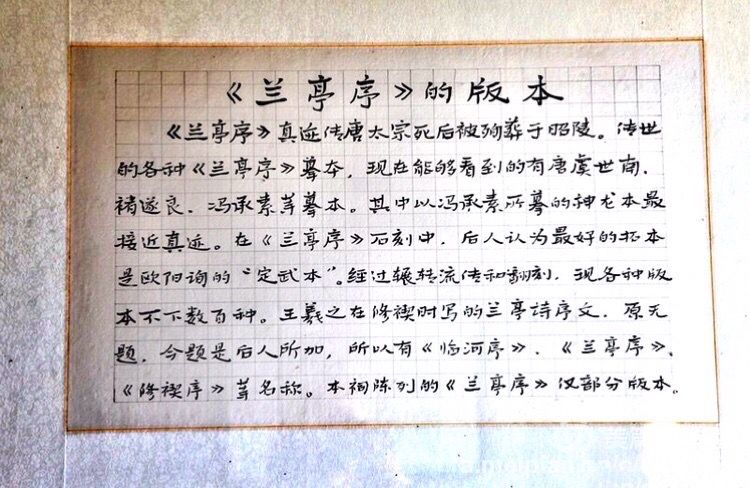 《兰亭序》的版本
《兰亭序》真迹传唐太宗死后被殉葬于昭陵。传世
的各种《兰亭序》摹本，现在能够看到的有唐虞世南、
褚遂良、冯承素等摹本。其中以冯承素所摹的神龙本最
接近真迹。在《兰亭序》石刻中，后人认为最好的拓本
是欧阳询的“定武本”。经过辗转流传和翻刻，现各种版
本不下数百种。王羲之在修禊时写的兰亭诗序文，原无
题，今题是后人所加，所以有《临河序》、《兰亭序》、
《修禊序》等名称。本祠陈列的《兰亭序》仅部分版本。